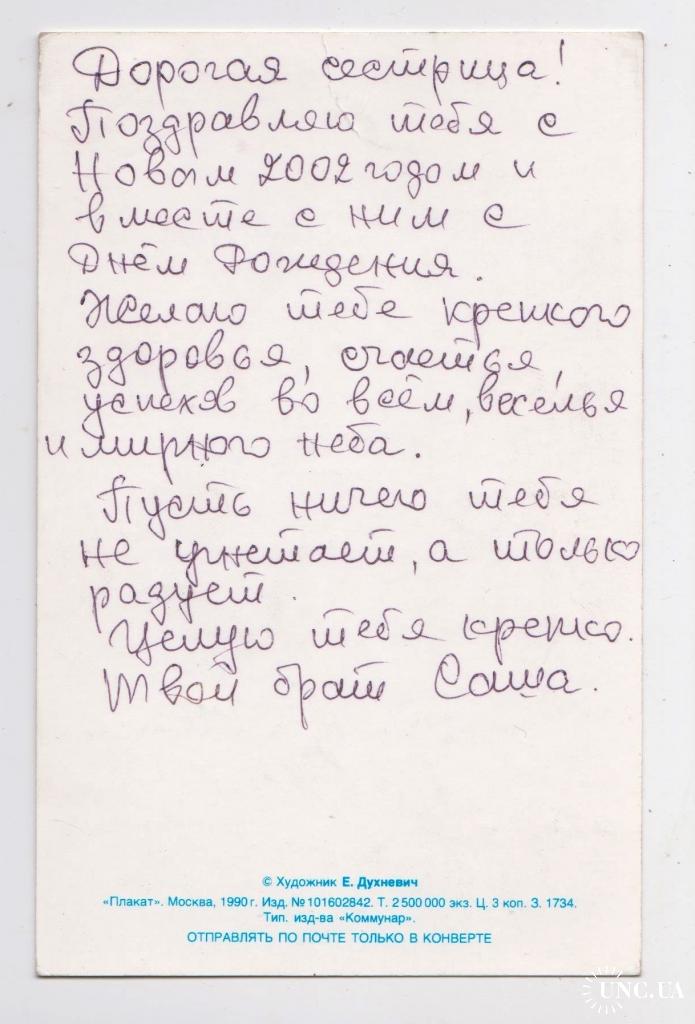 Дорогая сестрица!
Поздравляю тебя с
Новым 2002 годом и
вместе с ним с
Днём Рождения.
Желаю тебе крепкого
здоровья, счастья,
успехов во всём, веселья
и мирного неба.
Пусть ничего тебя
не угнетает, а только
радует.
Целую тебя крепко.
Твой брат Саша.
© Художник Е. Духневич
«Плакат». Москва, 1990 г. Изд. № 101602842. Т. 2 500 000 экз. Ц. 3 коп. З. 1734.
Тип. изд-ва «Коммунар».
ОТПРАВЛЯТЬ ПО ПОЧТЕ ТОЛЬКО В КОНВЕРТЕ
UNC.UA